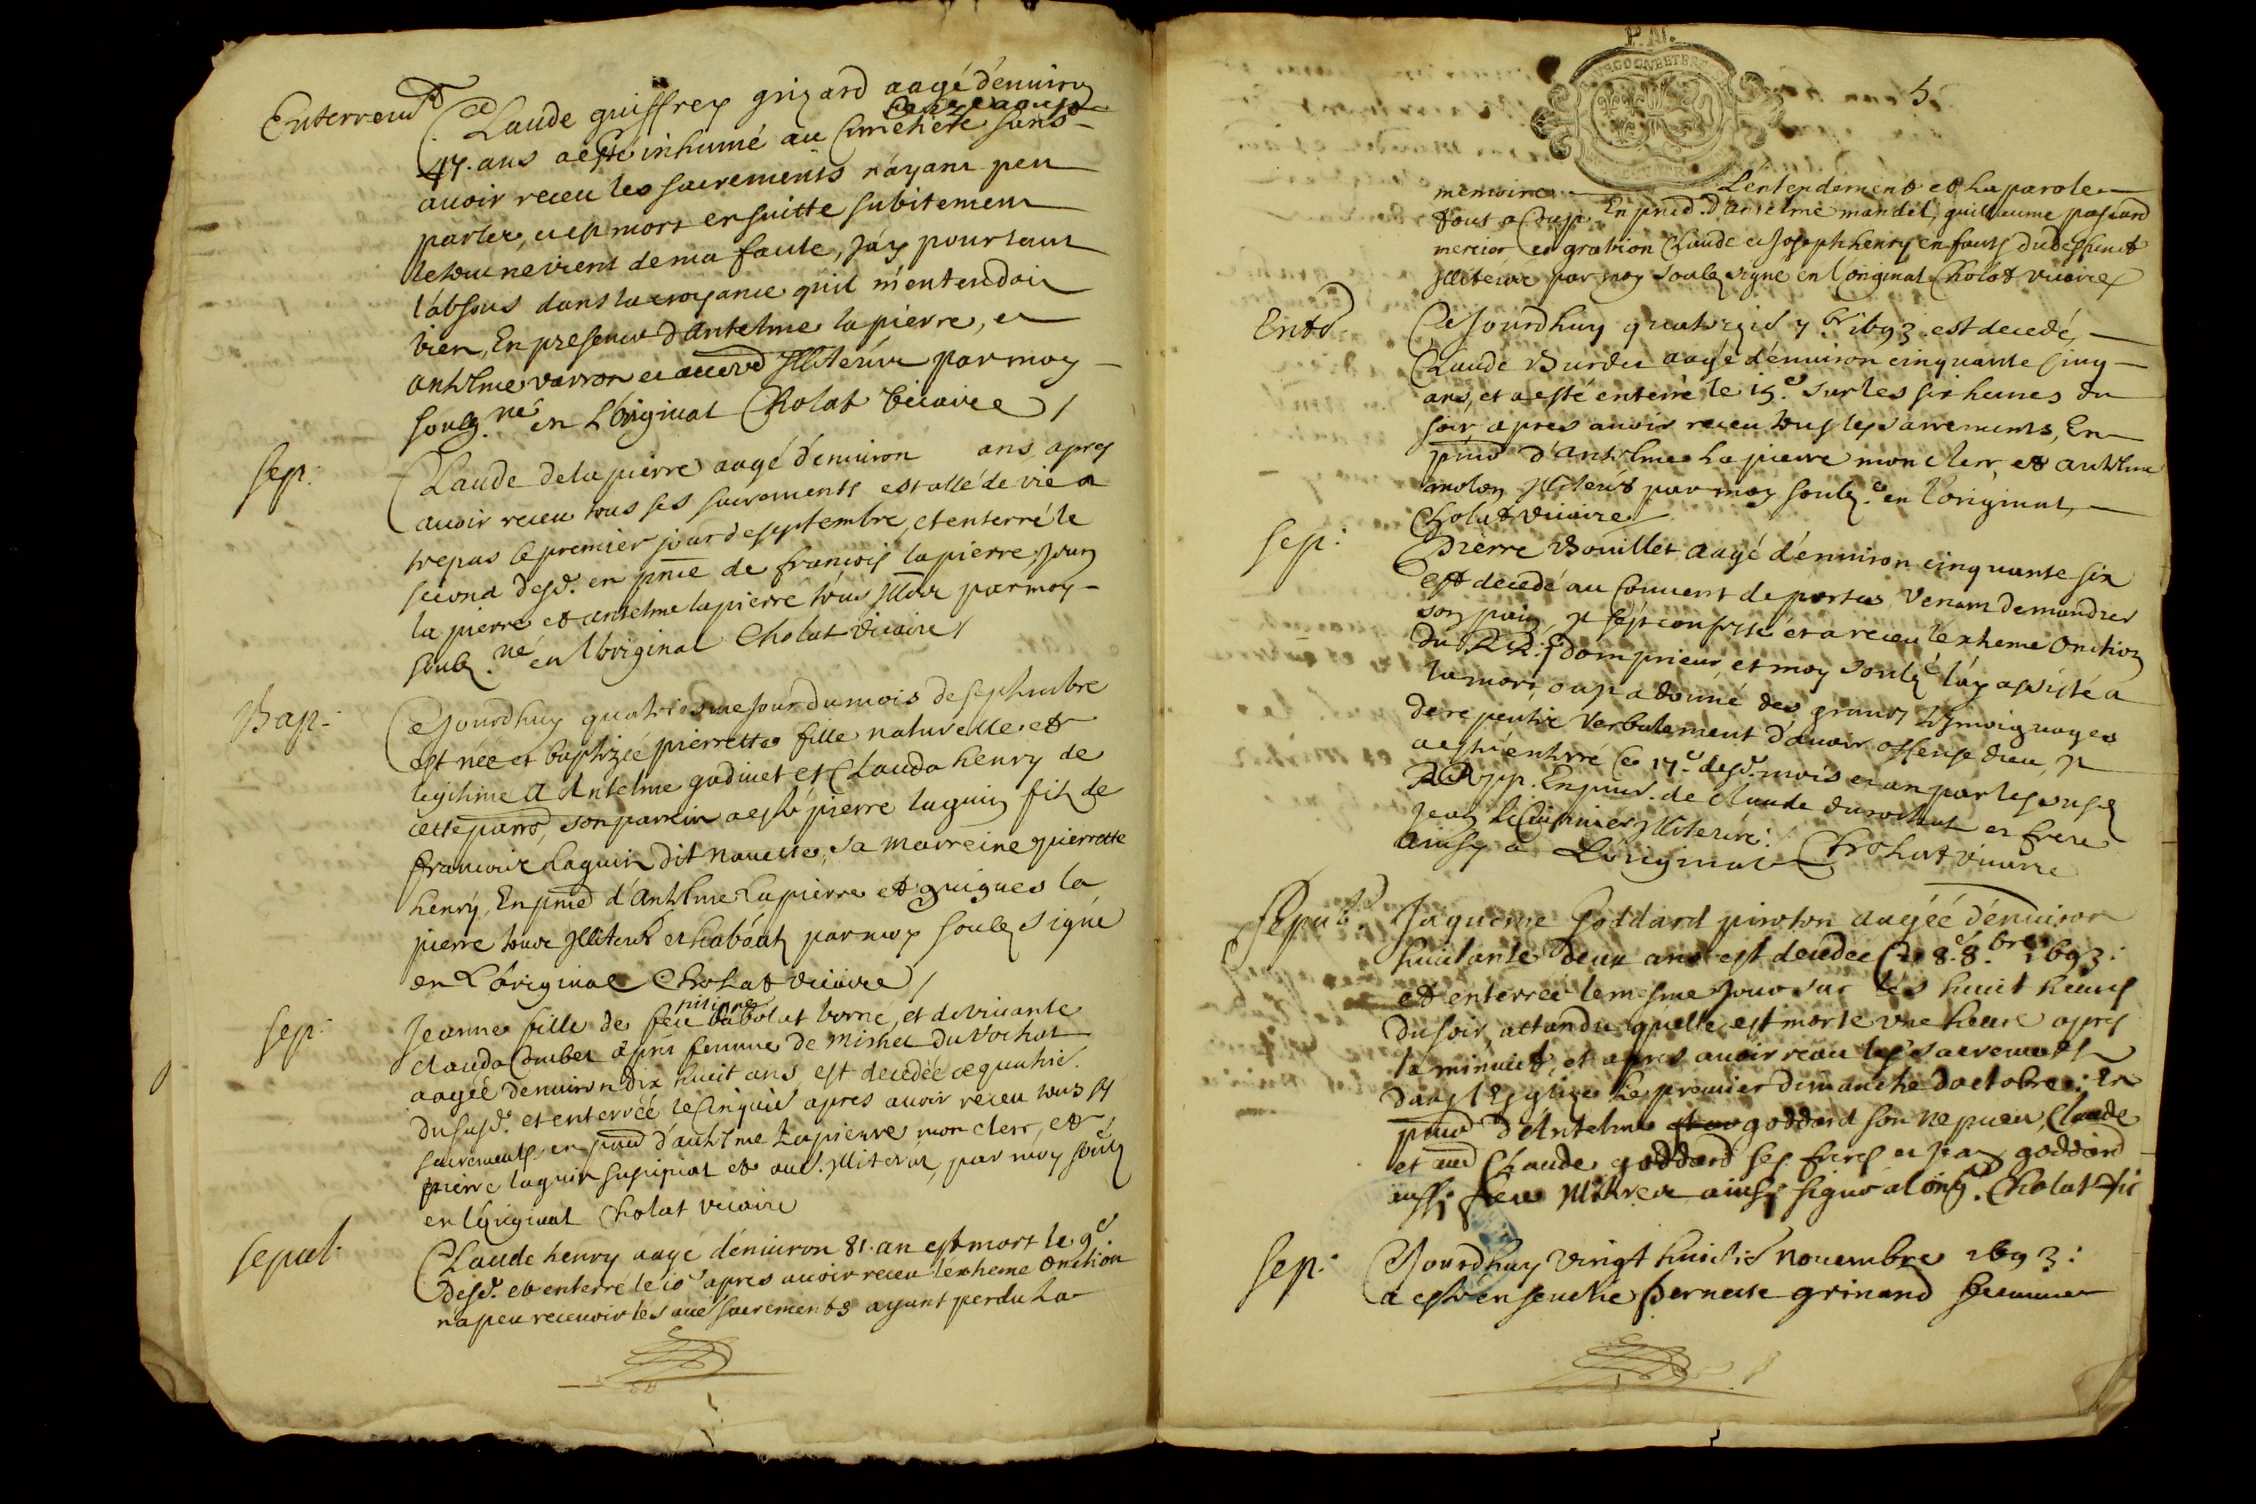 Enterremt Claude guiffrey grizard aagé d'enuiron
47. ans a esté inhumé au Cimetiere sans
auoir receu les sacrements n'ayant peu
parler, et est mort ensuitte subitement
le tout ne vient de ma faute, J'ay pourtant
l'absous dans la croyance qu'il m'entendoit
bien, En presence d'Antelme lapierre, et
antelme varron et Illiterés par moy
soubz.né en L'original Cholat vicaire /
sep: Claude delapierre aagé d'enuiron ans apres
auoir receu tous ses sacrements est allé de vie a
trepas le premier jour de septembre, et enterré le
second desd. en pnce de françois lapierre, Jean
la pierre et antelme lapierre tous Illre par moy
soubz.né en l'original Cholat vicaire /
Bap: Ce Jourdhuy quatriesme Jour du mois de septembre
est née et baptizée pierrette fille naturelle et
legitime a Antelme godinet et Clauda henry de
cette parro, son parrin a esté pierre laguin fils de
francois Laguin dit nouette, sa marreine pierrette
henry, En pnce d'Antelme Lapierre et guigues la
pierre tous Illiterés par moy soubz signé
en L'original Cholat vicaire /
sep: Jeanne fille de feu borné, et de viuante
Clauda Combet femme de Michel Durochat
aagée denuiron dix huit ans est decedée ce quatrie.
du susd. et enterrée le Cinquie apres auoir receu tous ses
sacrements en pnce d'antelme Lapierre mon clerc, et
pierre laguin Illiteres, par moy soubz
en l'original Cholat vicaire
sepul: Claude henry aagé d'enuiron 81. an est mort le 9e.
desd. et enterré le 10e apres auoir receu l'extreme Onction
n'a peu receuoir les autres sacrements ayant perdu La
P. M.
5
memoire L'entendement et La parole
tout a Coup. En pnce d'antelme mandel, guillaume passard
mercier et Claude et Joseph henry enfants du deffunct
Illiterés par moy soubz signé en l'original Cholat vicaire
Entt. Ce Jourdhuy quatorzie 7bre 1693 est decedé,
Claude Burdet aagé d'enuiron cinquante cinq
ans, et a esté enterré le 15e. sur les six heures du
soir apres auoir receu tous les sacrements, En
pnce d'Antelme Lapierre mon clerc et antelme
molon Illiterés par moy soubz.é en l'original,
Cholat vicaire
sep: Pierre Bouillet aagé d'enuiron cinquante six
est decedé au Couuent de portes, venant demander
son pain, Il s'est confessé et a receu l'extreme Onction
du RR: dom prieur, et moy soubz.é l'ay assisté a
la mort, ou Il a donné des grands tesmoignages
de repentir Verbalement d'auoir offensé dieu, Il
a esté enterré Ce 17e. desd. mois et an par les
RR pp. En pnce de Claude durochat et frere
Jean le Cuisinier Illiteréz.
ainsy a L'original Cholat vicaire
Sepult. Jaqueme Goddard pinoton aagée d'enuiron
huictante deux ans est decedée Ce 8e. 8.bre 1693:
et enterrée le mesme Jour sur les huict heures
du soir, attandu qu'elle est morte une heure apres
la minuict, et apres auoir receu les sacrements
dans l'Esglise Le premier Dimanche d'octobre; En
pnce d'Antelme goddard son nepueu, Claude
et Claude goddard ses freres et Jean goddard
aussi frere ainsi signé a l'orig. Cholat vic
Sep: Ce Jourdhuy vingt huictie nouembre 1693:
a esté enseuelie Perneste grinand femme